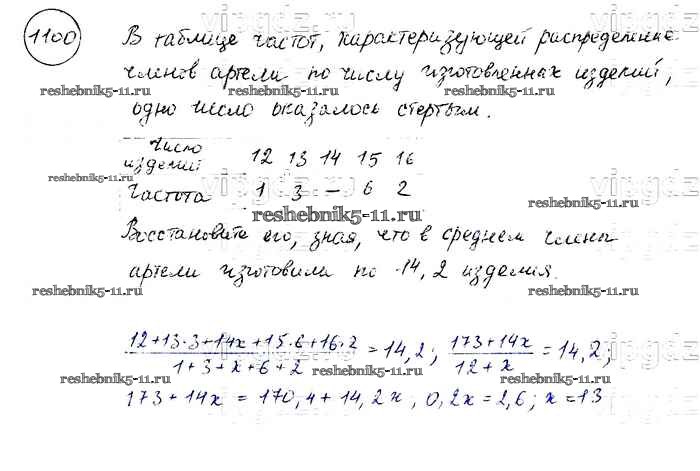 1100
В таблице частот, характеризующей распределение
членов артели по числу изготовленных изделий,
reshebnik5-11.ru reshebnik5-11.ru
одно число оказалось стертым.
Число
изделий 12 13 14 15 16
reshebnik5-11.ru
Частота 1 3 – 6 2
reshebnik5-11.ru
Восстановите его, зная, что в среднем члены
артели изготовили по 14,2 изделия.
reshebnik5-11.ru reshebnik5-11.ru
12+13·3+14x+15·6+16·2 / 1+3+x+6+2 = 14,2; 173+14x / 12+x = 14,2;
reshebnik5-11.ru reshebnik5-11.ru
173+14x = 170,4+14,2x, 0,2x=2,6; x=13